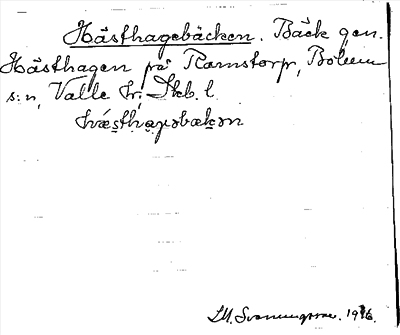 Hästhagebäcken. Bäck gen.
Hästhagen på Ramstorp, Bolum
s:n, Valle hr, Skb. l.
S. M. Svanungsson. 1916.